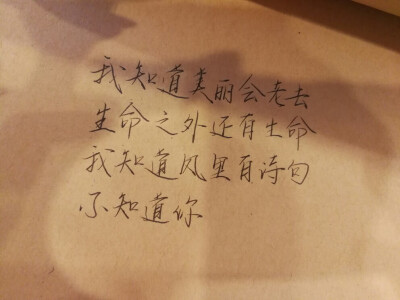 我知道美丽会老去
生命之外还有生命
我知道风里有诗句
不知道你